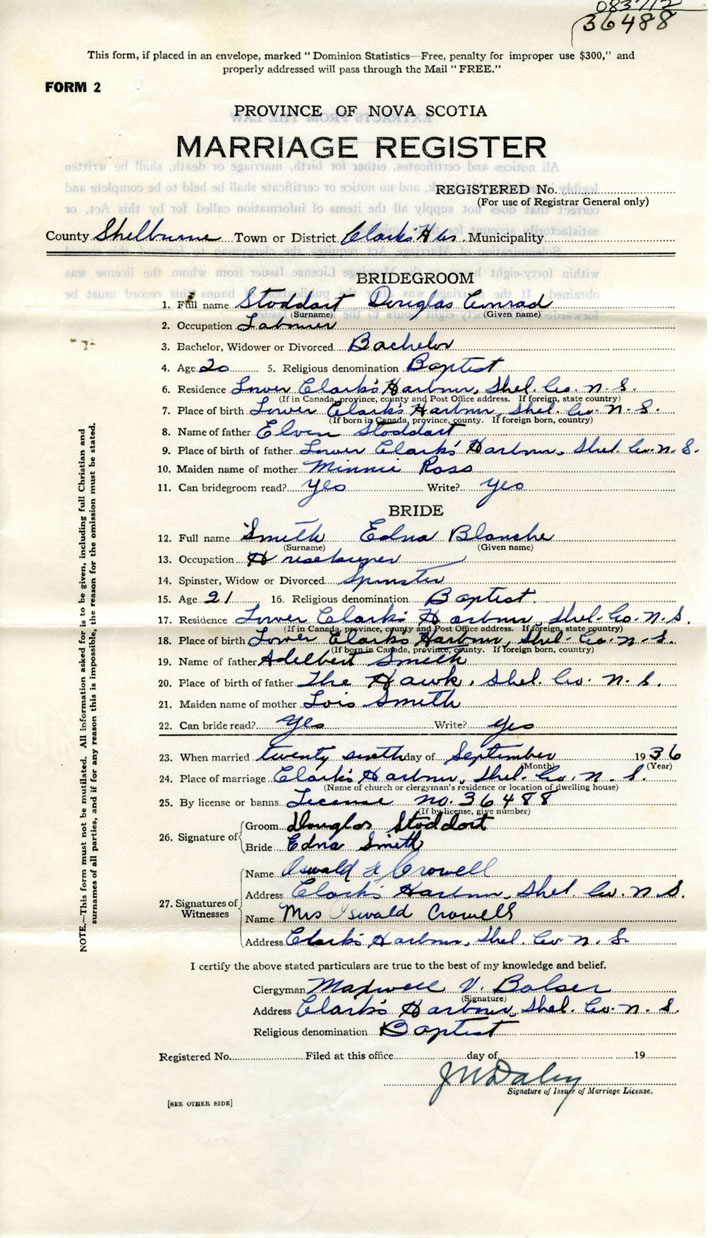 083712
36488
This form, if placed in an envelope, marked " Dominion Statistics—Free, penalty for improper use $300," and
properly addressed will pass through the Mail "FREE."
FORM 2
PROVINCE OF NOVA SCOTIA
MARRIAGE REGISTER
REGISTERED No.
(For use of Registrar General only)
County Shelburne Town or District Clark's Har. Municipality
BRIDEGROOM
1. Full name Stoddart Douglas Conrad
(Surname) (Given name)
2. Occupation Labourer
3. Bachelor, Widower or Divorced Bachelor
4. Age 20 5. Religious denomination Baptist
6. Residence Lower Clark's Harbour, Shel. Co. N. S.
(If in Canada, province, county and Post Office address. If foreign, state country)
7. Place of birth Lower Clark's Harbour, Shel. Co. N. S.
(If born in Canada, province, county. If foreign born, country)
8. Name of father Elven Stoddart
9. Place of birth of father Lower Clark's Harbour, Shel. Co. N. S.
10. Maiden name of mother Minnie Ross
11. Can bridegroom read? yes Write? yes
BRIDE
12. Full name Smith Edna Blanche
(Surname) (Given name)
13. Occupation Housekeeper
14. Spinster, Widow or Divorced Spinster
15. Age 21 16. Religious denomination Baptist
17. Residence Lower Clark's Harbour, Shel. Co. N. S.
(If in Canada, province, county and Post Office address. If foreign, state country)
18. Place of birth Lower Clark's Harbour, Shel. Co. N. S.
(If born in Canada, province, county. If foreign born, country)
19. Name of father Adelbert Smith
20. Place of birth of father The Hawk, Shel. Co. N. S.
21. Maiden name of mother Lois Smith
22. Can bride read? yes Write? yes
23. When married twenty sixth day of September 1936
(Month) (Year)
24. Place of marriage Clark's Harbour, Shel. Co. N. S.
(Name of church or clergyman's residence or location of dwelling house)
25. By license or banns License no. 36488
(If by license, give number)
26. Signature of
Groom Douglas Stoddart
Bride Edna Smith
27. Signatures of Witnesses
Name Oswald Crowell
Address Clark's Harbour, Shel. Co. N. S.
Name Mrs Oswald Crowell
Address Clark's Harbour, Shel. Co. N. S.
I certify the above stated particulars are true to the best of my knowledge and belief.
Clergyman Maxwell V. Bolser
(Signature)
Address Clark's Harbour, Shel. Co. N. S.
Religious denomination Baptist
Registered No. Filed at this office day of 19
J W Daley
Signature of Issuer of Marriage License.
[SEE OTHER SIDE]
NOTE.—This form must not be mutilated. All information asked for is to be given, including full Christian and
surnames of all parties, and if for any reason this is impossible, the reason for the omission must be stated.